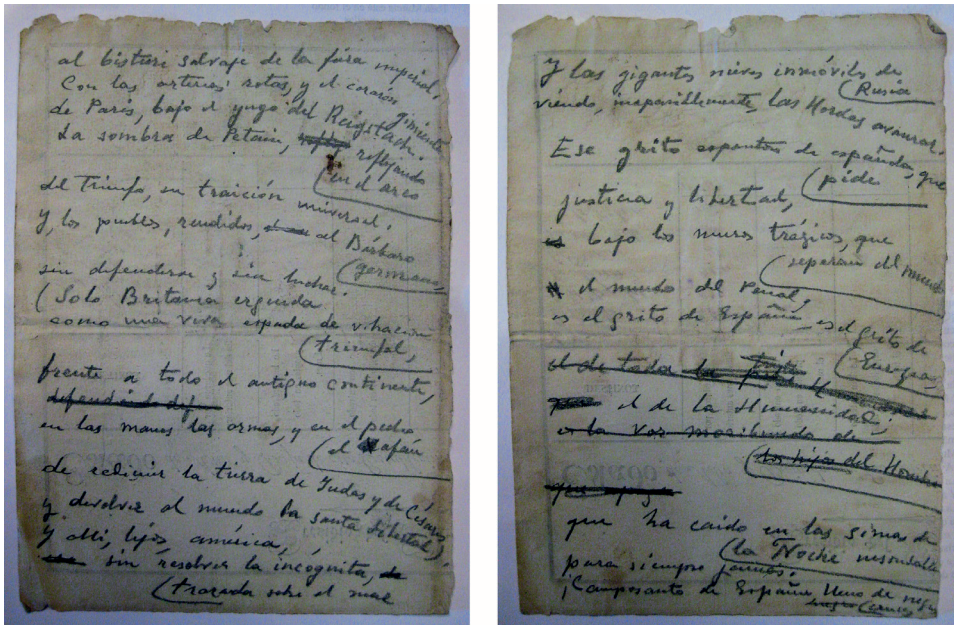 al bisturí salvaje de la furia imperial.
Con las arterias rotas, y el corazón gimiente
de París, bajo el yugo del Reigstach.
La sombra de Petain, reflejando
(en el arco
del Triunfo, su traición universal.
Y, los pueblos, rendidos, al Bárbaro
(germano,
sin defenderse y sin luchar.
(Solo Britania erguida
como una viva espada de vibración
(triunfal,
frente a todo el antiguo continente,
defendiendo
en las manos las armas, y en el pecho
(el afán
de redimir la tierra de Judas y de Césares
y devolver al mundo la santa libertad).
Y allí, lejos, américa,
sin resolver la incógnita,
(trazada sobre el mar
Y las gigantes nieves inmóviles de
(Rusia
viendo, impasiblemente, las Hordas avanzar.
Ese grito espantoso de españoles, que
(piden
justicia y libertad,
bajo los muros trágicos, que
(separan del mundo
el mundo del Penal,
es el grito de España, es el grito de
(Europa,
el de toda la
el de la Humanidad;
o la voz moribunda de
(los hijos del Hombre
que ha caído en las simas de
(la Noche insondable
para siempre jamás.
¡Camposanto de España lleno de
negras (cruces